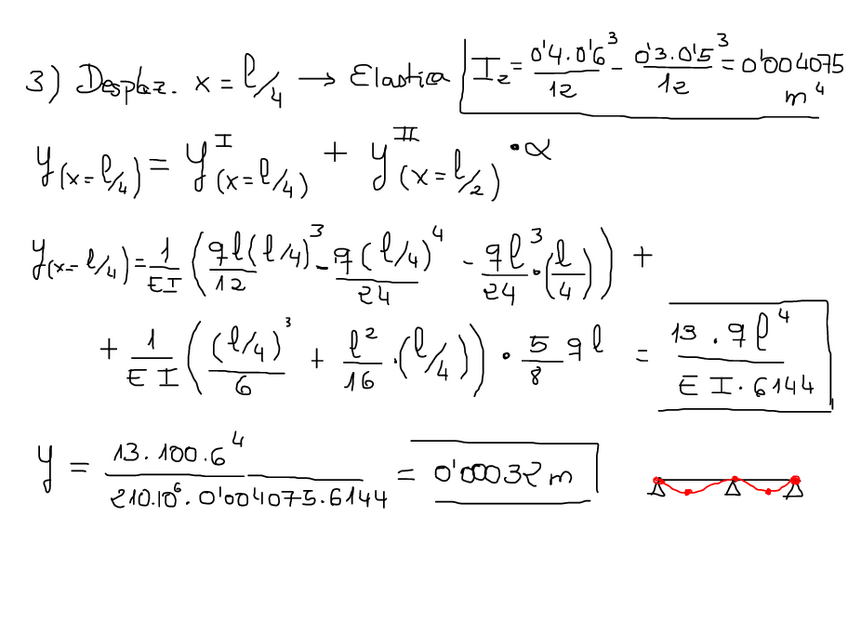 3) Desplaz. x = l/4 → Elastica
I_z = 0'4·0'6³/12 - 0'3·0'5³/12 = 0'004075 m⁴
y(x=l/4) = y^I(x=l/4) + y^II(x=l/2) · α
y(x=l/4) = 1/EI (ql(l/4)³/12 - q(l/4)⁴/24 - ql³/24 · (l/4)) +
+ 1/EI ((l/4)³/6 + l²/16 · (l/4)) · 5/8 ql = 13·ql⁴/EI·6144
y = 13·100·6⁴/210·10⁶·0'004075·6144 = 0'00032 m